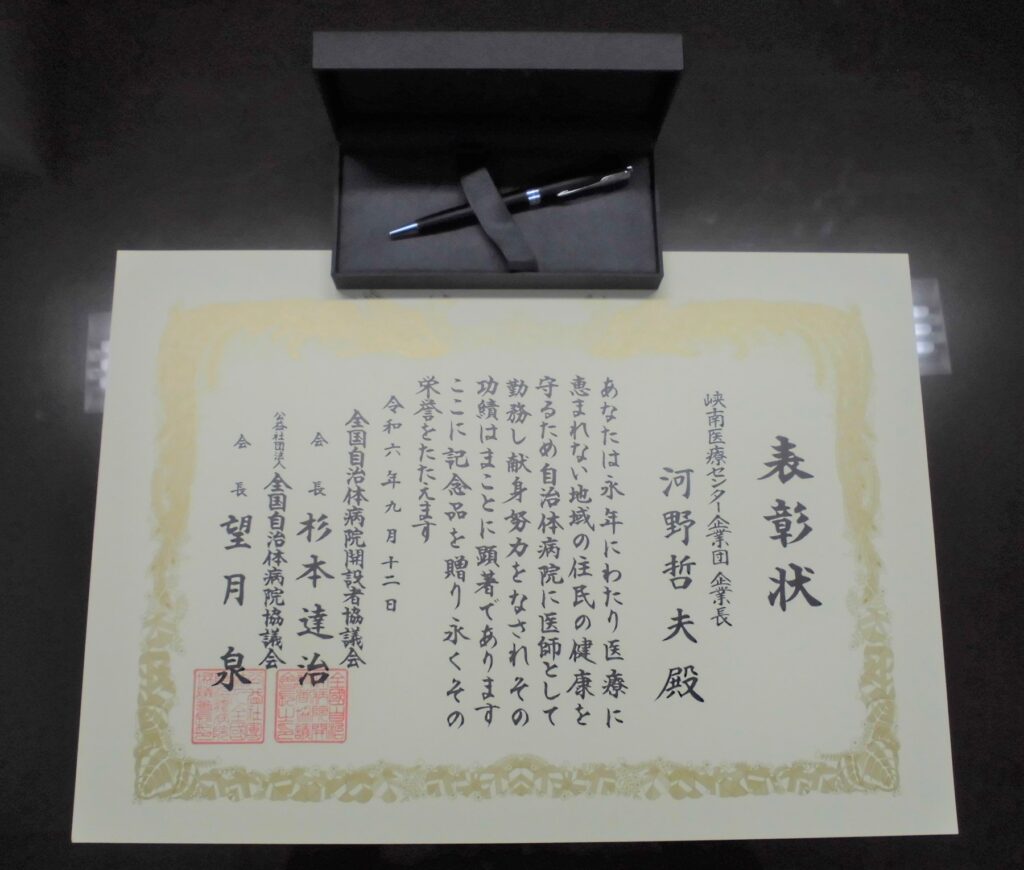 表彰状
峡南医療センター企業団 企業長
河野哲夫殿
あなたは永年にわたり医療に
恵まれない地域の住民の健康を
守るため自治体病院に医師として
勤務し献身努力をなされその
功績はまことに顕著であります
ここに記念品を贈り永くその
栄誉をたたえます
令和六年九月十二日
全国自治体病院開設者協議会
会長 杉本達治
公益社団法人 全国自治体病院協議会
会長 望月泉